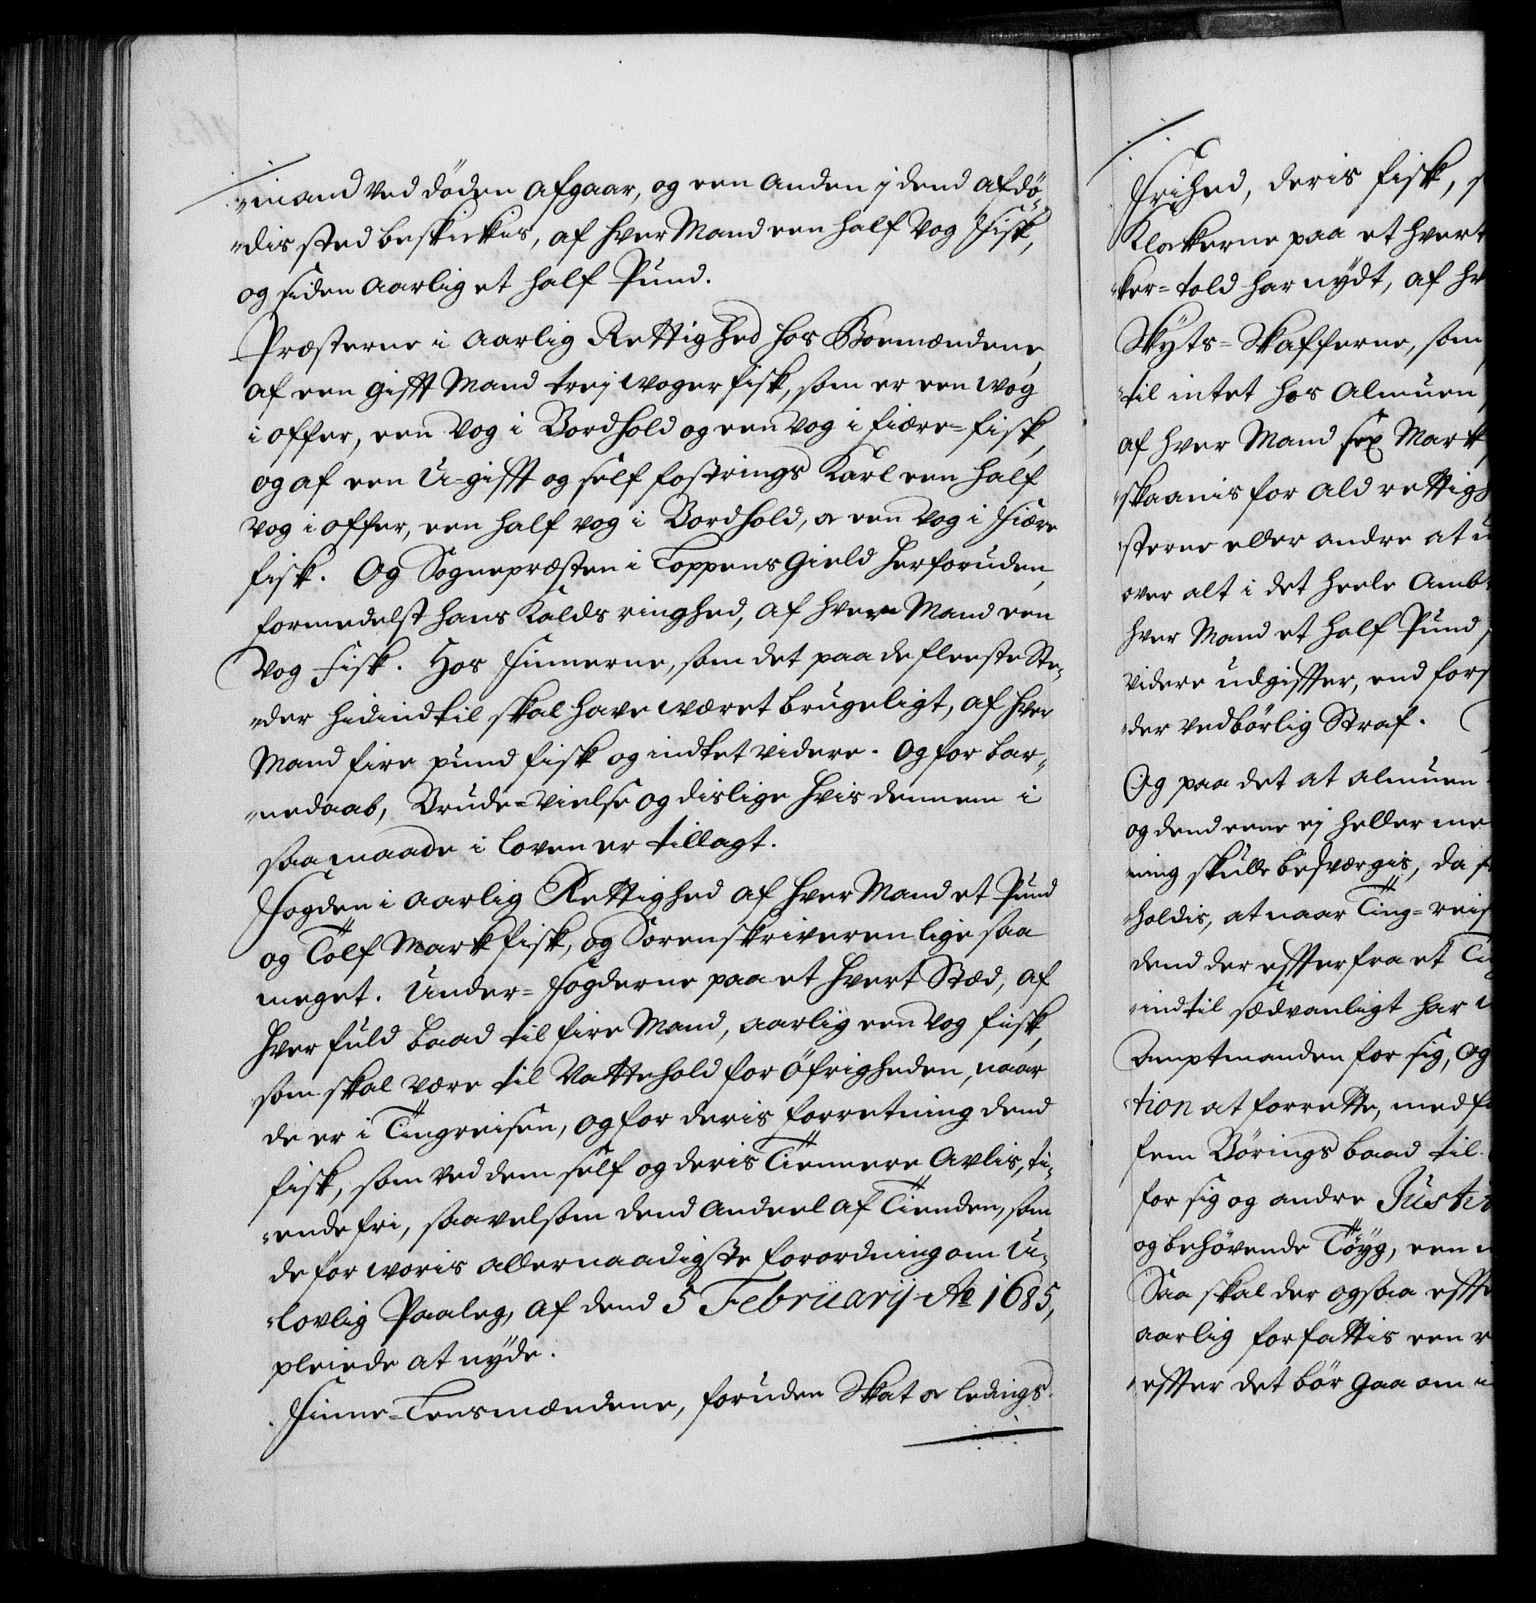 mand ved döden afgaar, og een anden j dend afdö-
dis sted beskickis, af hver Mand een half Vog Fisk,
og siden Aarlig et half Pund.
Præsterne i Aarlig Rettighed hos Boemændene,
af een gifft Mand trej woger fisk, som er een wog
i offer, een Vog i Bordhold og een Vog i fiære-fisk,
og af een U-gifft og self fostrings Karl een half
vog i offer, een half vog i Bordhold, oc een Vog i Fiære
fisk. Og Sognepræsten i Loppens Gield herforuden,
formedelst hans Kalds ringhed, af hver Mand een
Vog Fisk. Hos Finnerne, som det paa de fleeste Ste-
der hidindtil skal have wæret brugeligt, af hver
Mand fire pund fisk og indtet videre. Og for bar-
nedaab, Brude-Vielse og dislige hvis dennem i
saa maade i loven er tillagt.
Fogden i aarlig Rettighed af hver Mand et Pund
og Tolf Mark fisk, og Sorenskriveren lige saa
meget. Under-fogderne paa et hvert Stæd, af
hver fuld baad til fire Mand, aarlig een vog fisk,
som skal være til Vattehold for Öfrigheden, naar
de er i Tingreisen, og for deris forretning dend
fisk, som ved dem self og deris Tiennere Avlis, ti-
ende fri, saavelsom dend Andeel af Tienden, som
de for woris allernaadigste forordning om U-
lovlig Paaleg, af dend 5 Februarij Ao 1685,
pleiede at nyde.
Finne-Lensmændene, foruden Skat oc ledings
Frihed, deris fisk,
Klockerne paa et hvert
ker-told har nydt, af
Skyts-Skafferne, som
til intet hos Almuen
af hver Mand sex Mark
skaanis for ald rettigh
sterne eller andre at
over alt i det heele Amb
hver Mand et half Pund
videre udgiffter, end fors
der vedbörlig Straf.
Og paa det at almuen
og dend eene ej heller me
ning skulle besværgis, da
holdis, at naar Ting-reis
dend der effter fra et
indtil sædvanligt har
Amptmanden for sig, og
tion at forrette, med
fem Börings baad til
for sig og andre Justi
og behövende Töyg, een
Saa skal der ogsaa effte
aarlig forfattis een
effter det bör gaa om